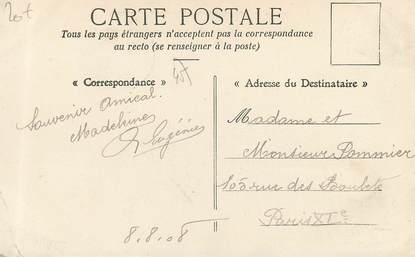 20f
CARTE POSTALE
Tous les pays étrangers n'acceptent pas la correspondance
au recto (se renseigner à la poste)
« Correspondance »
45f
« Adresse du Destinataire »
Souvenir Amical.
Madeleine
Eugénie
Madame et
Monsieur Pommier
105 rue des
Paris XIe
8.8.08